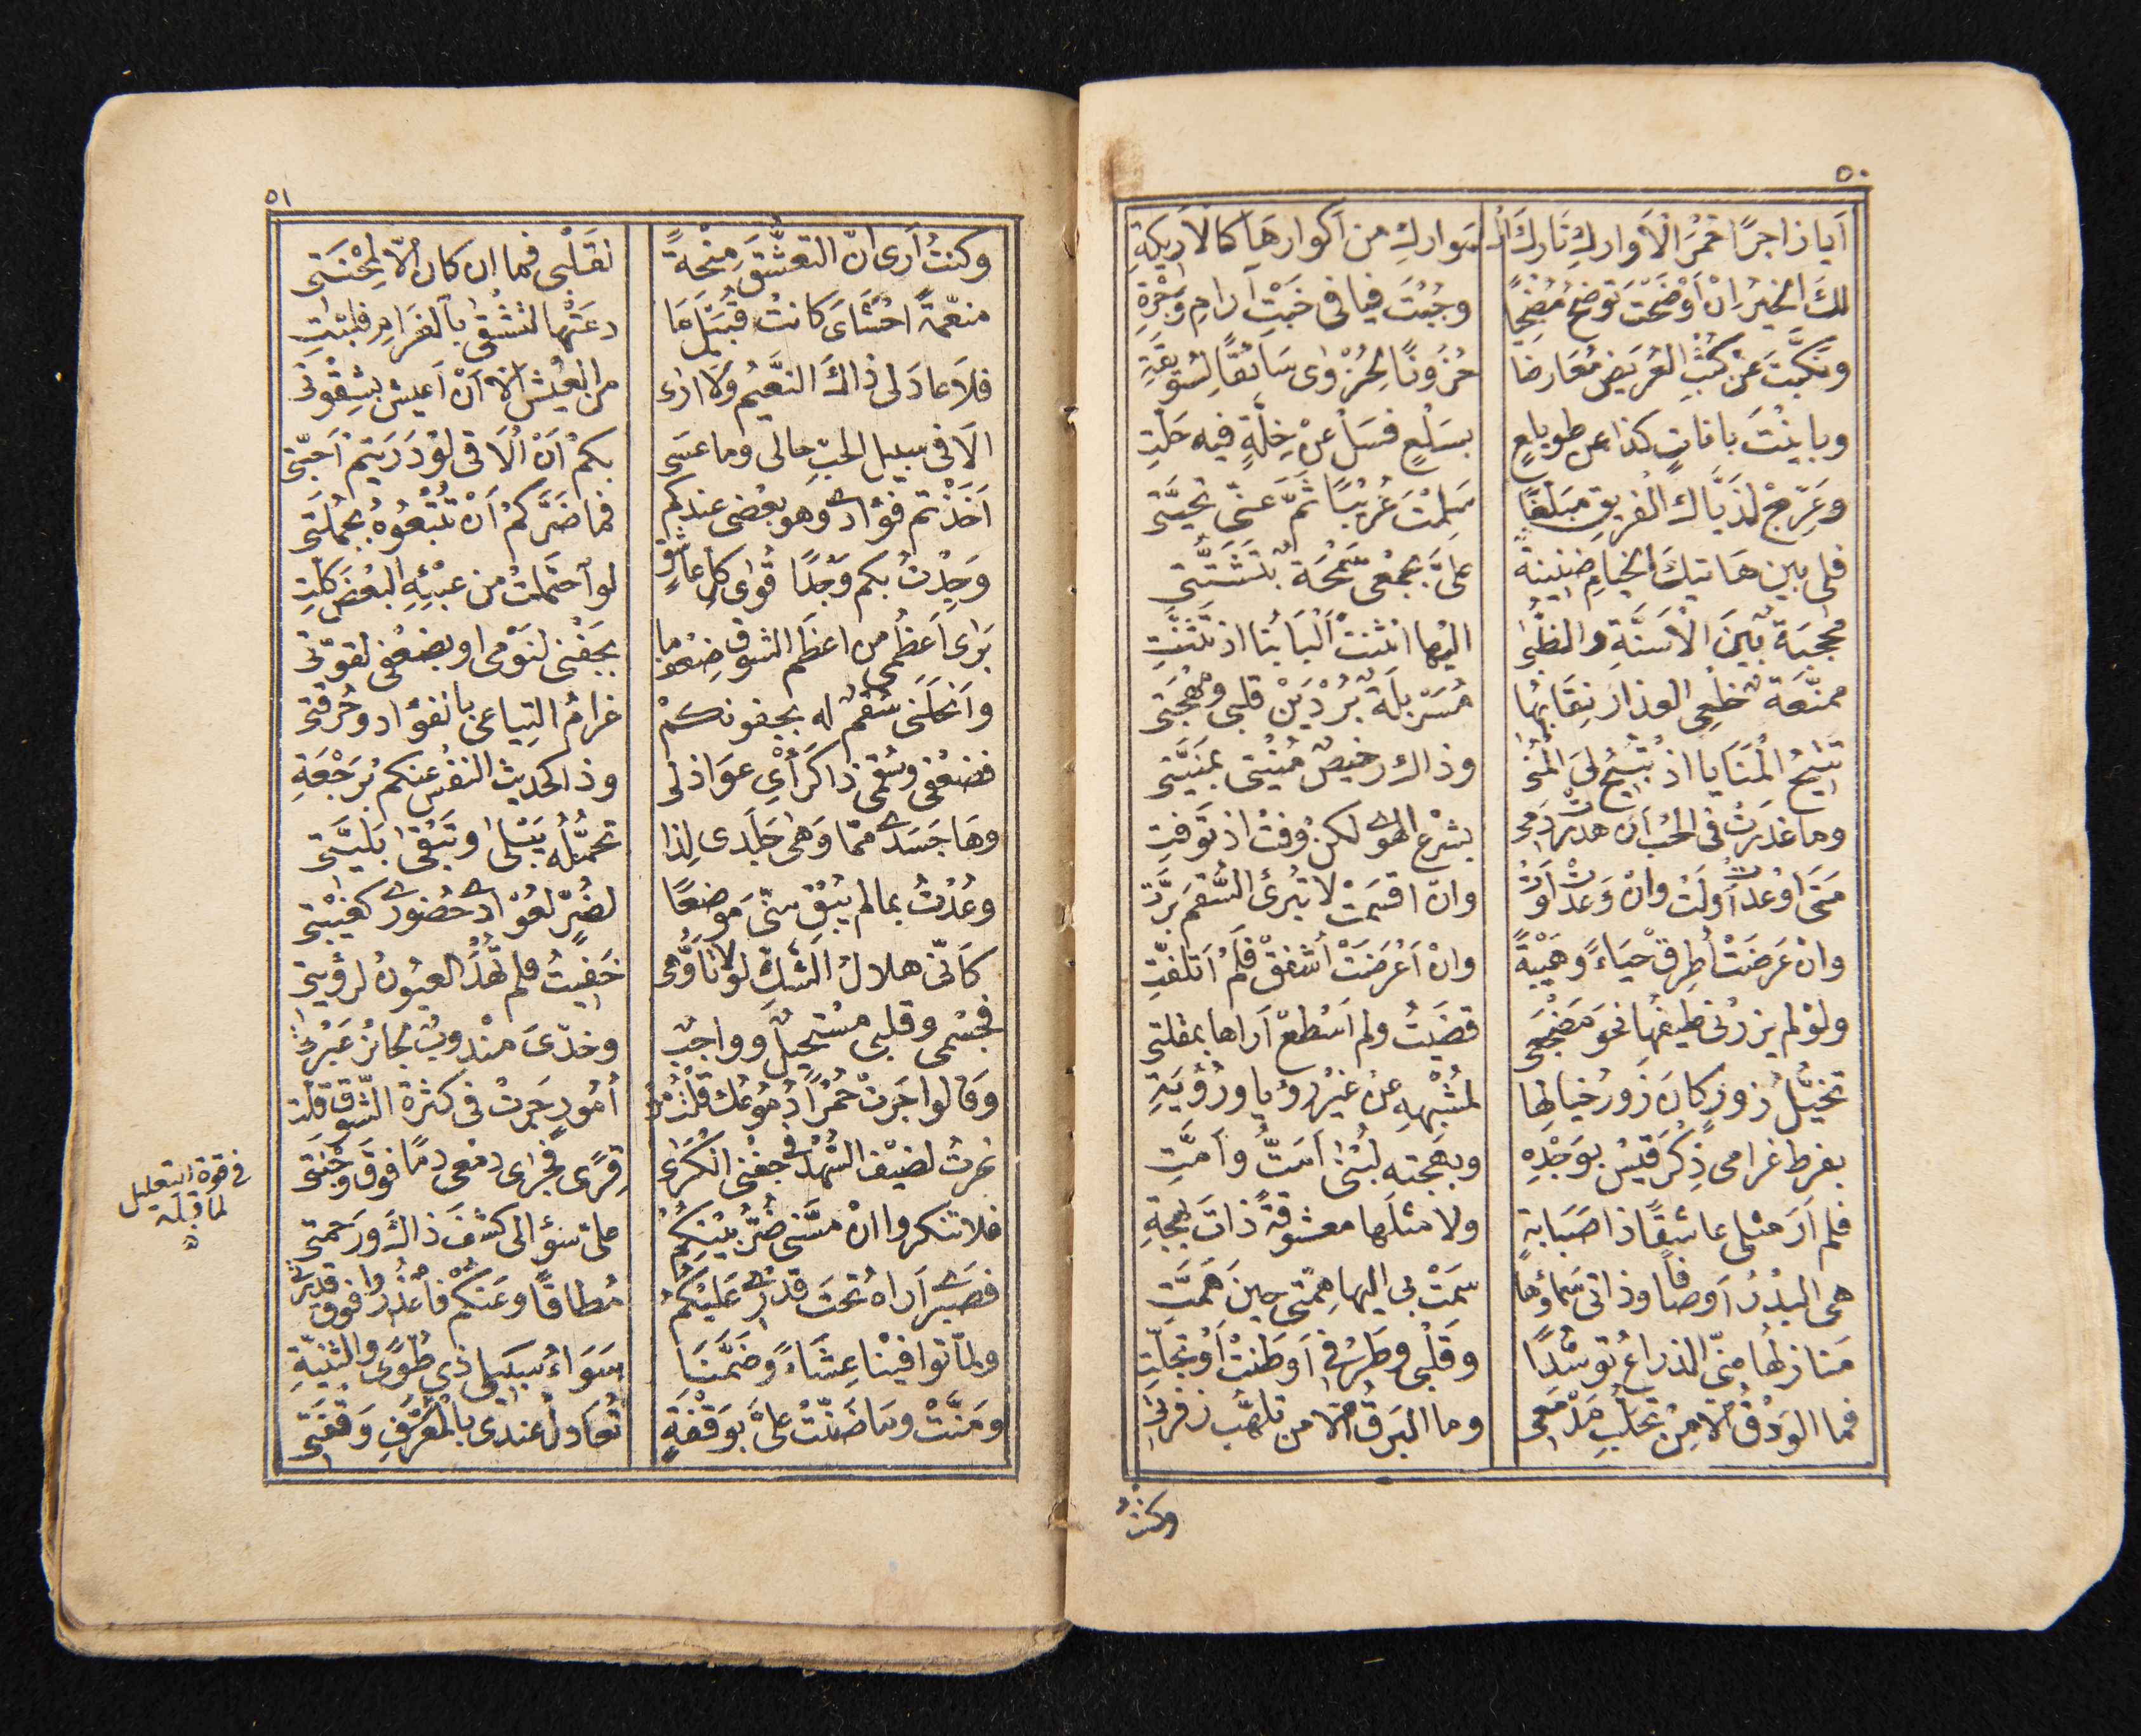 ٥٠
أَيا زاجرًا حُمُرَ الْأَوارِكِ تَارِكَ الْـ مَوارِكِ من أكوارهَا كالأَرِيكَةِ
لكَ الخيرُ انْ أَوْضَحْتَ تُوضِحَ مُضْحِيًا وجُبْتَ فيافى خَبْتِ آرامِ وَجْرَةِ
ونَكَّبْتَ عَنْ كُثْبِ العُرَيْضِ مُعَارِضًا حُزُونًا لِحُزْوٰى سَائقًا لِسُوَيْقَةِ
وبايَنْتَ باناتٍ كذا عن طويلعٍ بسَلْعٍ فسَلْ عنْ حِلَّةٍ فيه حَلَّتِ
وعَرِّجْ لذَيَّاك الفريقِ مبَلِّغًا سَلِمْتَ عُرَيْبًا ثَمَّ عَنّى تحيَّتى
فلى بين هَاتيكَ الخيامِ ضنينةٌ علىَّ بجمعى سَمْحَةٌ بتَشَتُّتى
محجّبةٌ بَيْنَ الْأَسنَّةِ والظُّبٰى اليْها انثنتْ أَلْبَابُنا اذ تَثَنَّتِ
ممنَّعَةٌ خَلْعُ العذارِ نِقَابُها مُسَرْبَلَةٌ بُرْدَيْنِ قلبى ومُهْجَتى
تُتِيحُ الْمَنَايا اذ تُبِيحُ لِىَ الْمُنٰى وذاك رخيصٌ مُنْيَتى بمَنِيَّتى
وما غدَرَتْ فى الحُبِّ أنْ هدَرَتْ دَمى بشرْعِ الهوٰى لكنْ وَفَتْ اذ تَوَفَّتِ
مَتٰى أوْعَدَتْ أَوْلَتْ وانْ وَعَدَتْ لَوَتْ وانْ اقسَمَتْ لا تُبْرئُ السُّقمَ بَرَّتِ
وانْ عَرَضَتْ أُطرِقْ حَيَاءً وهَيْبَةً وانْ أَعْرَضَتْ أُشفِقْ فلَمْ أتلفّتِ
ولوْ لم يزرْنى طيفُها نحوَ مَضْجَعى قضَيْتُ ولم أَسْطِعْ أراها بمقلتى
تخيُّلُ زُورٍ كانَ زَوْرُ خيالِها لمُشْبِهِهِ عنْ غيْرِ رُؤْيا ورُؤْيَةِ
بفرطِ غرامى ذِكْرَ قيْسٍ بوَجْدِهِ وبَهجتِها لُبْنٰى أَمَتُّ وأَمَّتِ
فلم أرَ مثلى عاشقًا ذا صَبَابةٍ ولا مثلَها معشوقةً ذاتَ بهجةِ
هى البَدْرُ أوصافًا وذاتى سَماؤُها سَمَتْ بى اليها هِمَّتى حينَ هَمَّتِ
مَنازلُها منّى الذراعُ توسُّدًا وقَلْبى وطَرْفى أوطَنَتْ أوْ تجلّتِ
فما الوَدْقُ الّا مِنْ تحلُّبِ مَدْمَعى وما البَرْقُ الّا من تلهُّبِ زفرتى
وكنتُ
٥١
وكنتُ أرى انّ التعشُّقَ مِنْحَةً لقَلْبى فما ان كان الّا لِمِحْنَتى
منعّمةً احْشَاىَ كانتْ قُبَيْلَ مَا دعَتْها لتشْقٰى بالغرَامِ فلبّتِ
فلَا عادَ لى ذاكَ النَّعِيمُ ولا ارٰى من العيْشِ الّا أنْ أعيشَ بشِقْوَتى
الَا فى سبيل الحبّ حالى وما عسَى بكمْ أنْ أُلَاقى لوْ دَرَيتمْ أحبّتى
أَخَذْتمْ فؤادى وهو بعْضى عندكم فما ضَرَّكمْ أنْ تُتْبِعُوهُ بجمُلَتى
وَجَدْتُ بكم وَجْدًا قُوٰى كلِّ عاشقٍ لو احتَمَلتْ من عِبْئِهِ البَعْضَ كلّتِ
بَرٰى أَعظُمى من اعظَمِ الشوقِ ضِعْفُ ما بجَفْنى لنَوْمى او بضعْفى لقوّتى
وأَنحَلَنى سُقْمٌ له بجفونكمْ غرامُ التياعى بالفؤاد وحُرْقتى
فضعْفى وسُقْمى ذا كرَأْىِ عوَاذلى وذا لحديث النفْسِ عنكم برَجْعَةِ
وهَا جَسَدى ممّا وَهٰى جَلَدى لِذا تحَمُّلُه يَبْلٰى وتَبْقٰى بَليَّتى
وعُدْتُ بما لم يُبْقِ منّى مَوضعًا لضُرٍّ لعُوّادى حُضُورى كغَيْبَتى
كأنّى هلالُ الشَّكِّ لولا تأَوُّهى خَفِيتُ فلم تُهْدَ العيُونُ لرؤْيتى
فجِسْمى وقلبى مُستحيلٌ وواجبٌ وخدّىَ مَنْدوبٌ لجائزِ عَبْرتى
وقالوا جَرَتْ حُمْرًا دُمُوعُك قلْتُ منْ أُمُورٍ جَرَتْ فى كثرةِ الشّوْقِ قلّتِ
نحرتُ لضيْف السُّهْدِ فى جفْنى الكَرٰى قِرًى فجرٰى دمْعى دمًا فوقَ وَجْنتى
فلا تنكروا انْ مسّنى ضُرُّ بيْنِكُمْ علىّ سؤالى كشْفَ ذاك ورَحمتى
فصَبْرى أراهُ تحتَ قدْرى عَلَيْكمُ مُطاقًا وعَنكمْ فاعْذُرُوا فوق قدْرتى
ولمّا توافيْنا عِشَاءً وضَمَّنَا سَوَاءُ سبيلَىْ ذى طُوًى والثنيّةِ
ومَنَّتْ وما ضَنّتْ علىَّ بوَقْفَةٍ تُعَادلُ عندى بالْمُعَرَّفِ وَقْفَتى
فى قوة التعليل
لما قبله